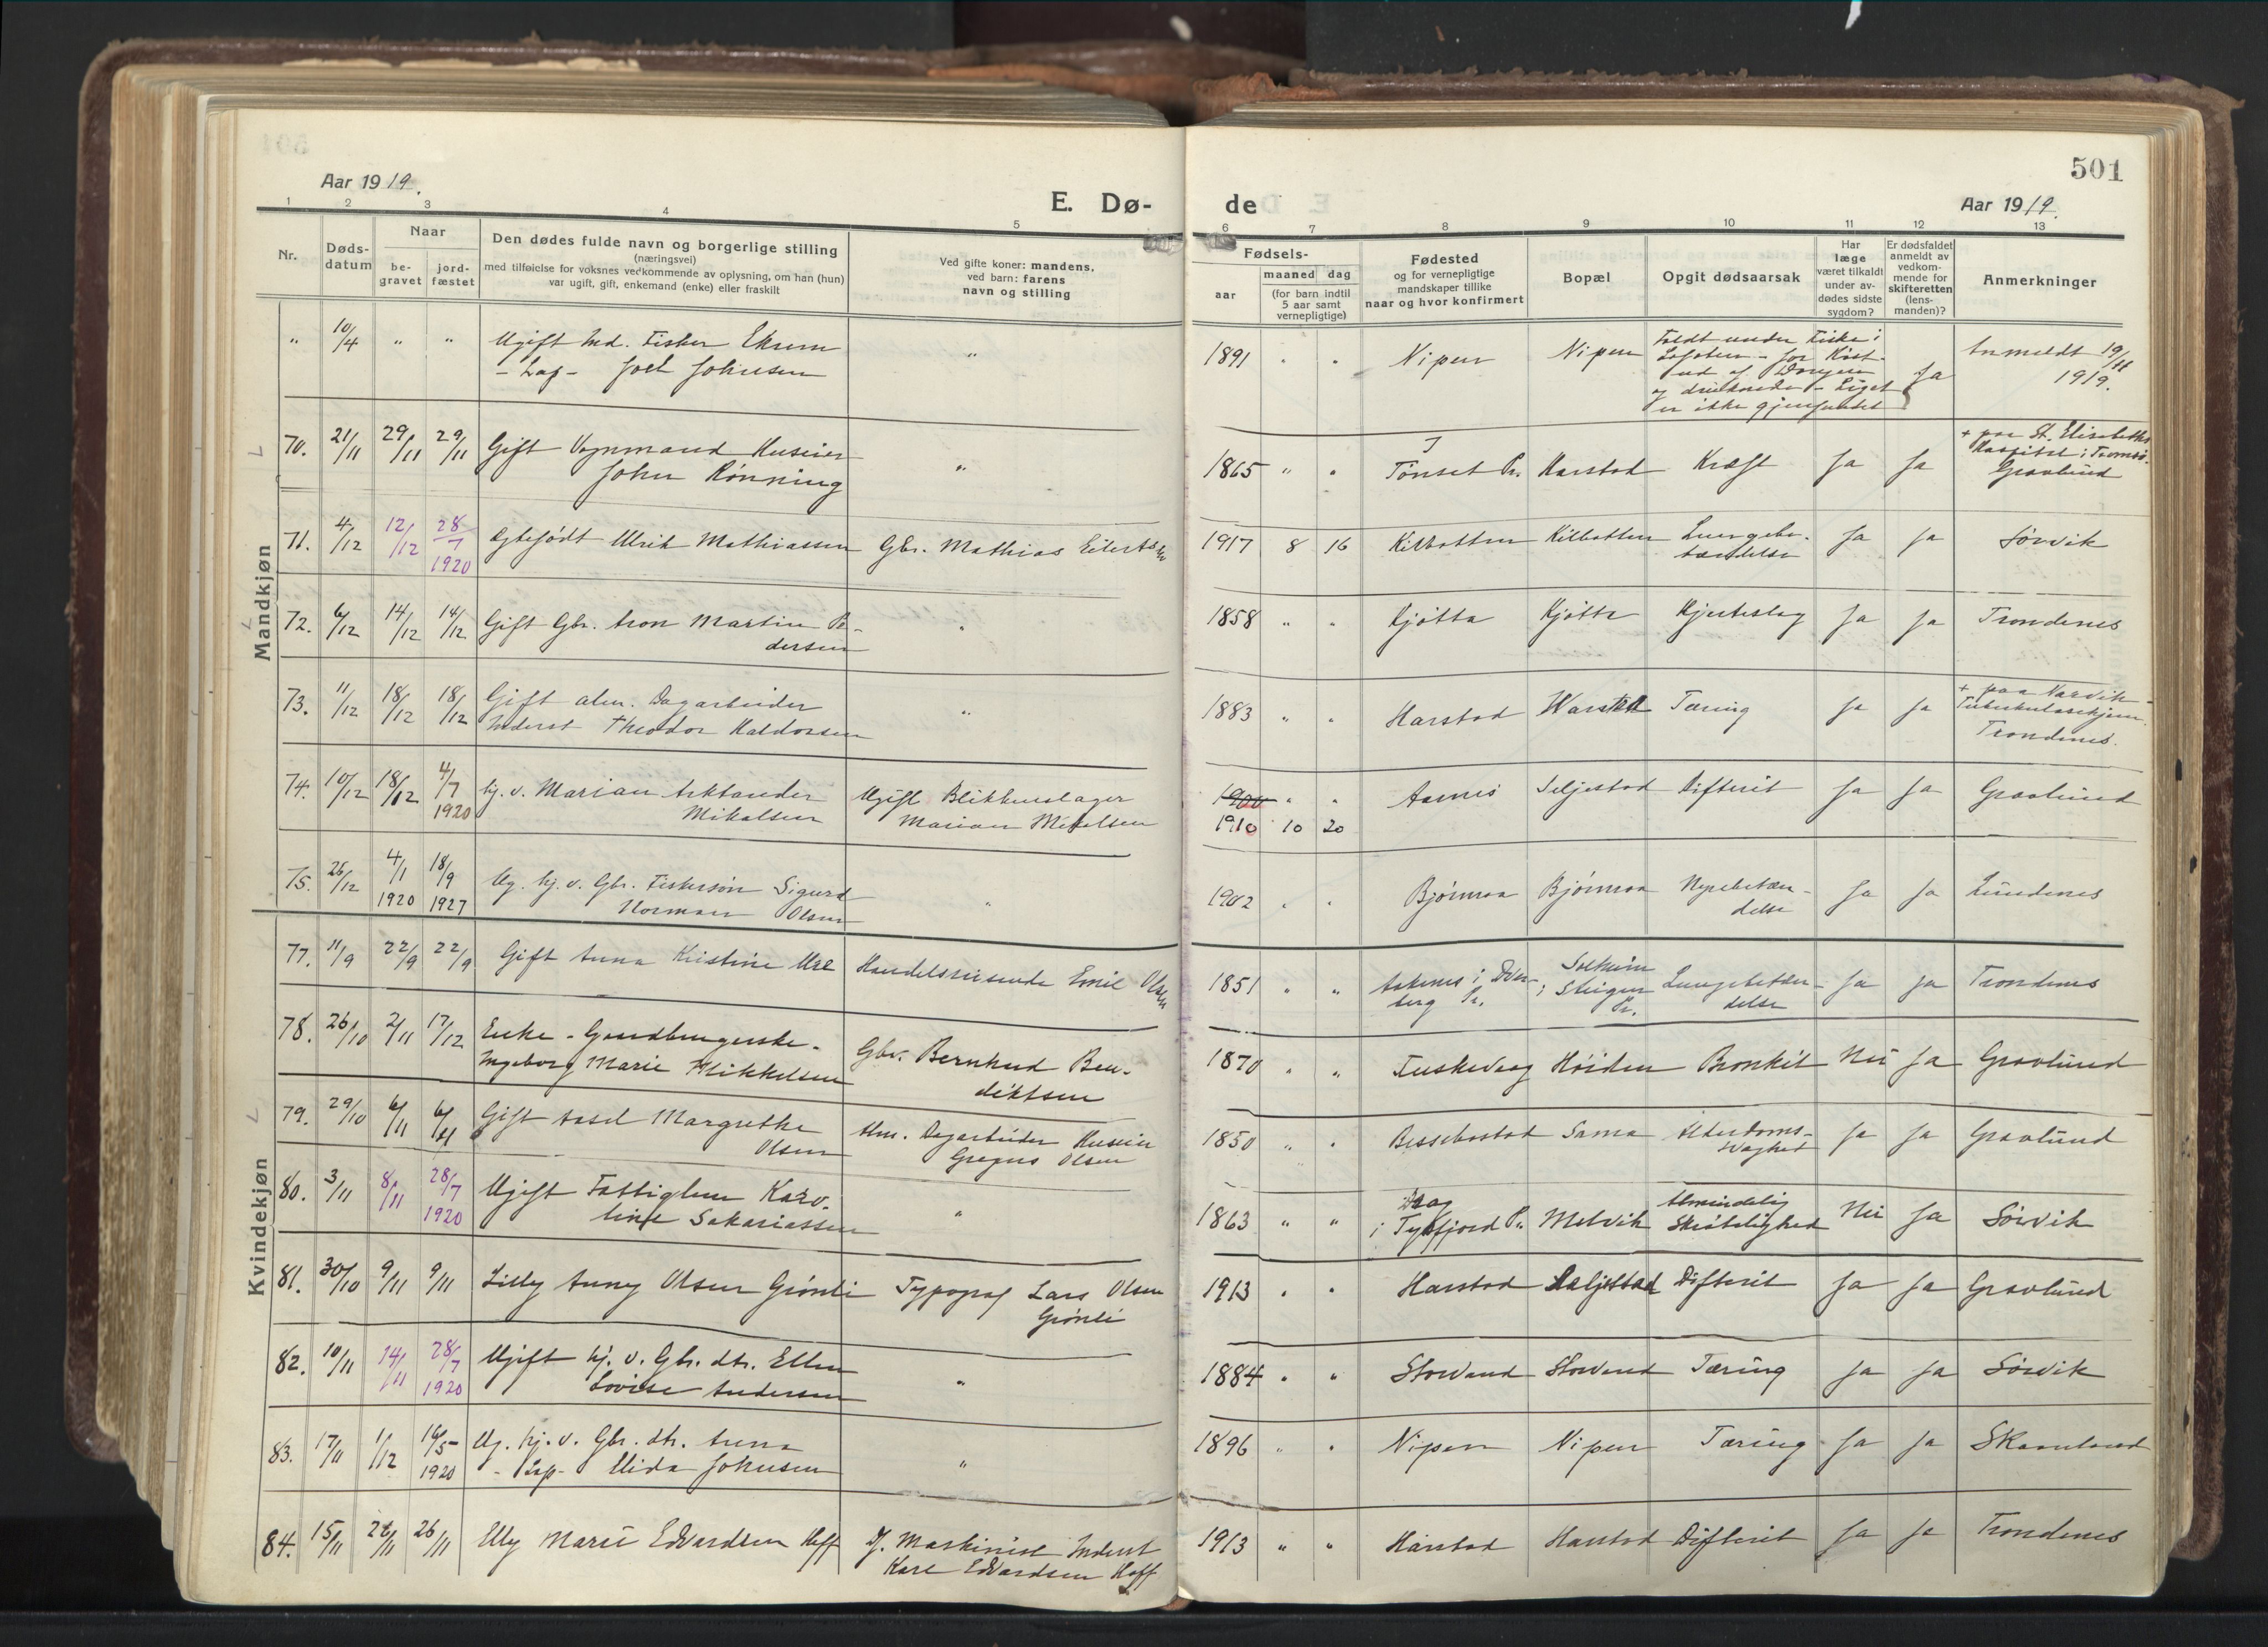 501
Aar 1919.
Aar 1919.
E. Dø- de
1 2 3 4 5 6 7 8 9 10 11 12 13
Nr.
Døds-
datum
Naar
be-
gravet
jord-
fæstet
Den dødes fulde navn og borgerlige stilling
(næringsvei)
med tilføielse for voksnes vedkommende av oplysning, om han (hun)
var ugift, gift, enkemand (enke) eller fraskilt
Ved gifte koner: mandens,
ved barn: farens
navn og stilling
Fødsels-
aar
maaned dag
(for barn indtil
5 aar samt
vernepligtige)
Fødested
og for vernepligtige
mandskaper tillike
naar og hvor konfirmert
Bopæl
Opgit dødsaarsak
Har
læge
været tilkaldt
under av-
dødes sidste
sygdom?
Er dødsfaldet
anmeldt av
vedkom-
mende for
skifteretten
(lens-
manden)?
Anmerkninger
Mandkjøn
" 10/4 " " Ugift Ind. Fisker
- Lap- Joel Johnsen " 1891 " " Nipen Nipen Faldt under Fiske i
Lofoten - for
ud af
og druknede - Liget
er ikke gjenfundet Ja Anmeldt 19/11
1919.
70. 21/11 29/11 29/11 Gift Vognmand Huseier
John Rønning " 1865 " " Tønset Pr. Harstad Kræft Ja Ja + paa St. Elisabeths
Hospital i Tromsø.
Gravlund
71. 4/12 12/12 28/7
1920 Ægtefødt Ulrik Mathiassen Gbr. Mathias Eilertsen 1917 8 16 Kilbotten Kilbotten Lungebe-
tændelse Ja Ja Sørvik
72. 6/12 14/12 14/12 Gift Gbr. Aron Martin Pe-
dersen " 1858 " " Kjøtta Kjøtta Hjerteslag Ja Ja Trondenes
73. 11/12 18/12 18/12 Gift alm. Dagarbeider
Inderst Theodor Haldorsen " 1883 " " Harstad Harstad Tæring Ja Ja + paa Narvik
Tuberkulosehjem.
Trondenes.
74. 10/12 18/12 4/7
1920 hj. v. Marian Arktander
Mikalsen Ugift Blikkenslager
Marian Mikalsen 1900
1910 10 20 Aarnes Seljestad Difterit Ja Ja Gravlund
75. 26/12 4/1
1920 18/9
1927 Ug. hj. v. Gbr. Fiskersøn Sigurd
Norman Olsen " 1902 " " Bjørnraa Bjørnraa Nyrebetæn-
delse Ja Ja Lundenes
Kvindekjøn
77. 11/9 22/9 22/9 Gift Anna Kristine Handelsreisende Emil Olsen 1851 " " i Dver-
berg Pr. Solheim
i Steigen
Pr. Lungebetæn-
delse Ja Ja Trondenes
78. 26/10 2/11 17/12 Enke - Gaardbrugerske -
Ingeborg Marie Mikkelsen Gbr. Bernhard Ben-
diktsen 1870 " " Tuskevaag Høiden Bronkit Nei Ja Gravlund
79. 29/10 6/11 6/11 Gift Assel Margrethe
Olsen Alm. Dagarbeider Huseier
Gregus Olsen 1850 " " Bessebostad Sama Alderdoms-
svaghed Ja Ja Gravlund
80. 3/11 8/11 28/7
1920 Ugift Fattiglem Karo-
line Sakariassen " 1863 " " Drag
i Tysfjord Pr. Melvik Almindelig
Skrøbelighed Nei Ja Sørvik
81. 30/10 9/11 9/11 Lilly Anny Olsen Grønli Typograf Lars Olsen
Grønli 1913 " " Harstad Seljestad Difterit Ja Ja Gravlund
82. 10/11 14/11 28/7
1920 Ugift hj. v. Gbr. dtr. Ellen
Lovise Andersen " 1884 " " Storvand Storvand Tæring Ja Ja Sørvik
83. 17/11 1/12 16/5-
1920 Ug. hj. v. Gbr. dtr. Anna
- Lap- Elida Johnsen " 1896 " " Nipen Nipen Tæring Ja Ja Skaanland
84. 15/11 26/11 26/11 Elly Marie Edvardsen Hoff Maskinist Inderst
Kare Edvardsen Hoff 1913 " " Harstad Harstad Difterit Ja Ja Trondenes